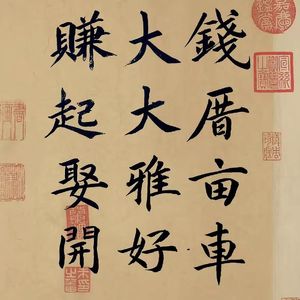 賺大錢
起大厝
娶雅亩
開好車